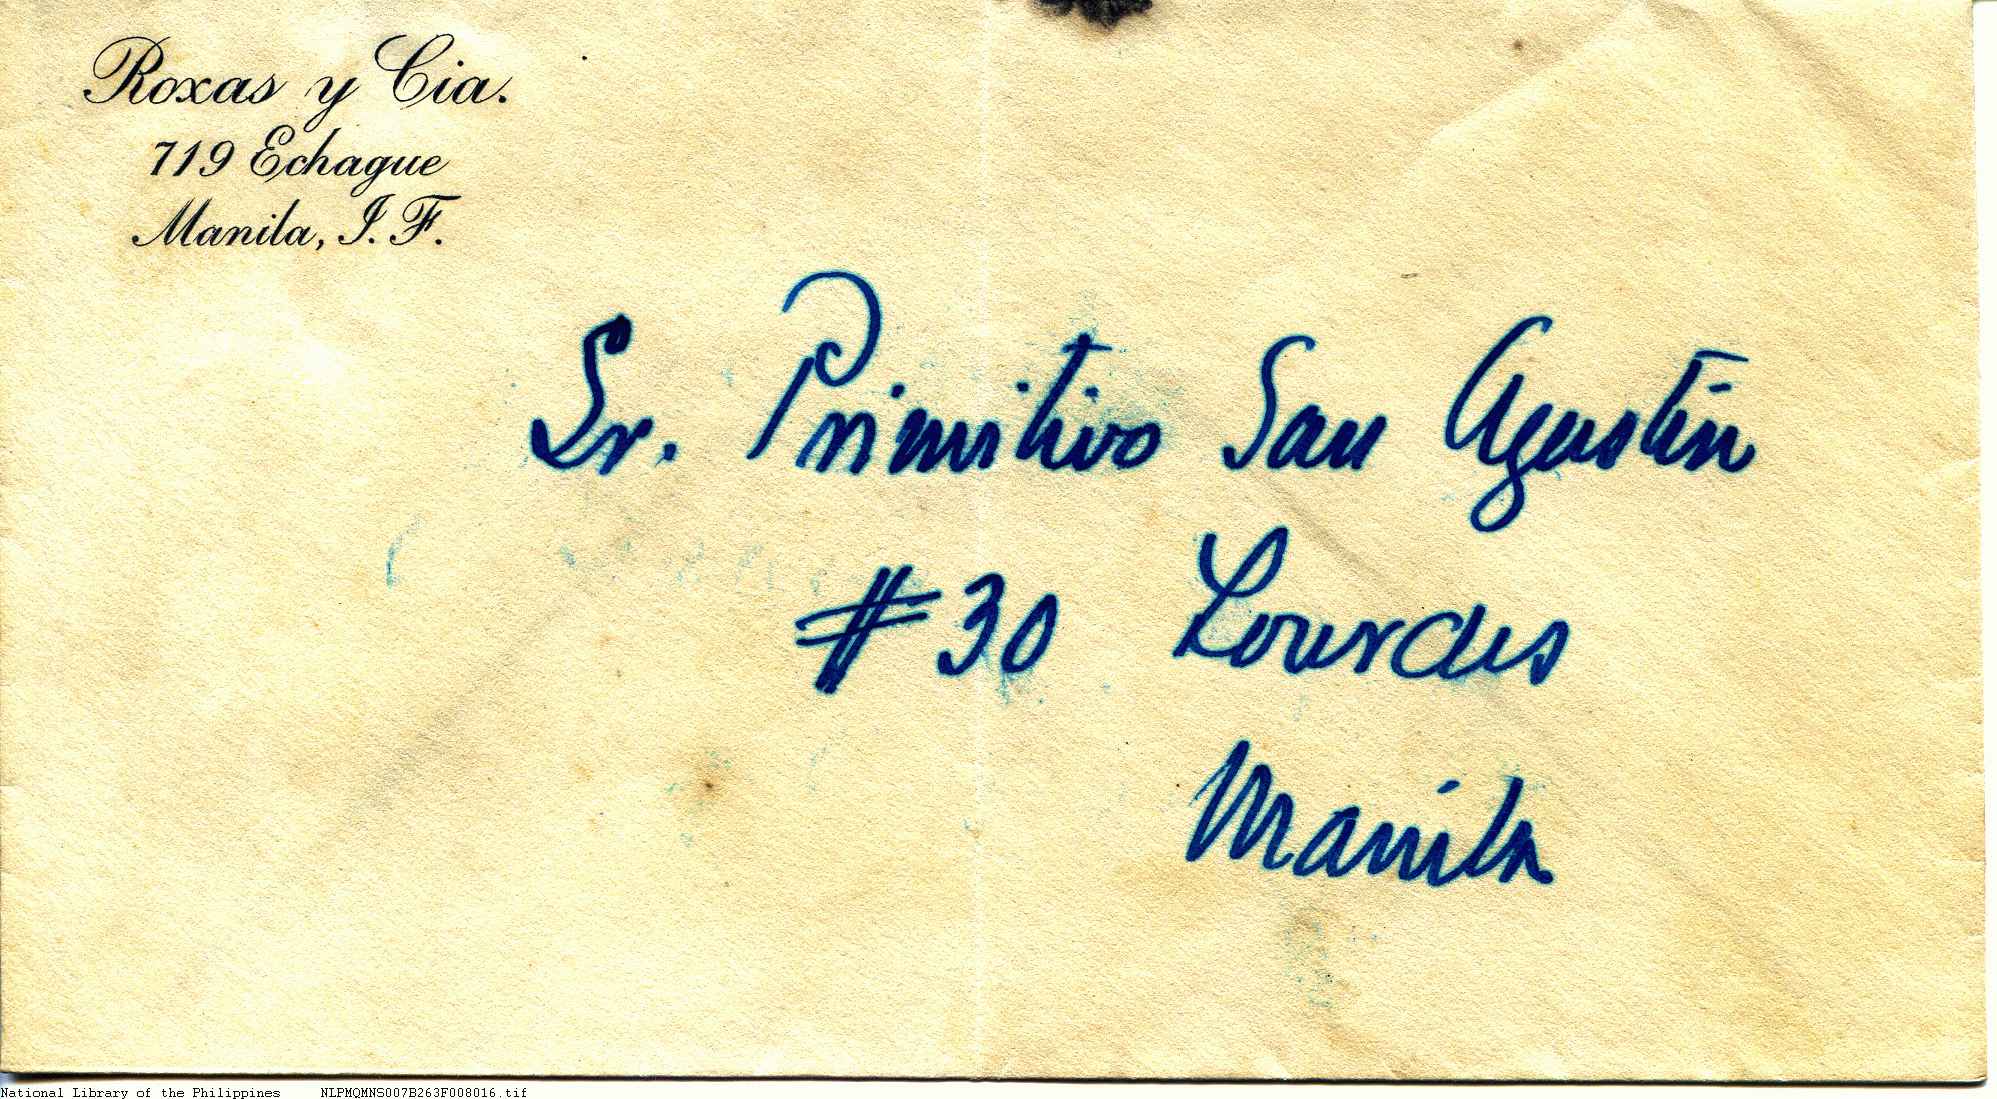 Roxas y Cia.
719 Echague
Manila, I. F.
Sr. Primitivo San Agustin
# 30 Lourdes
Manila
National Library of the Philippines NLPMQMNS007B263F008016.tif